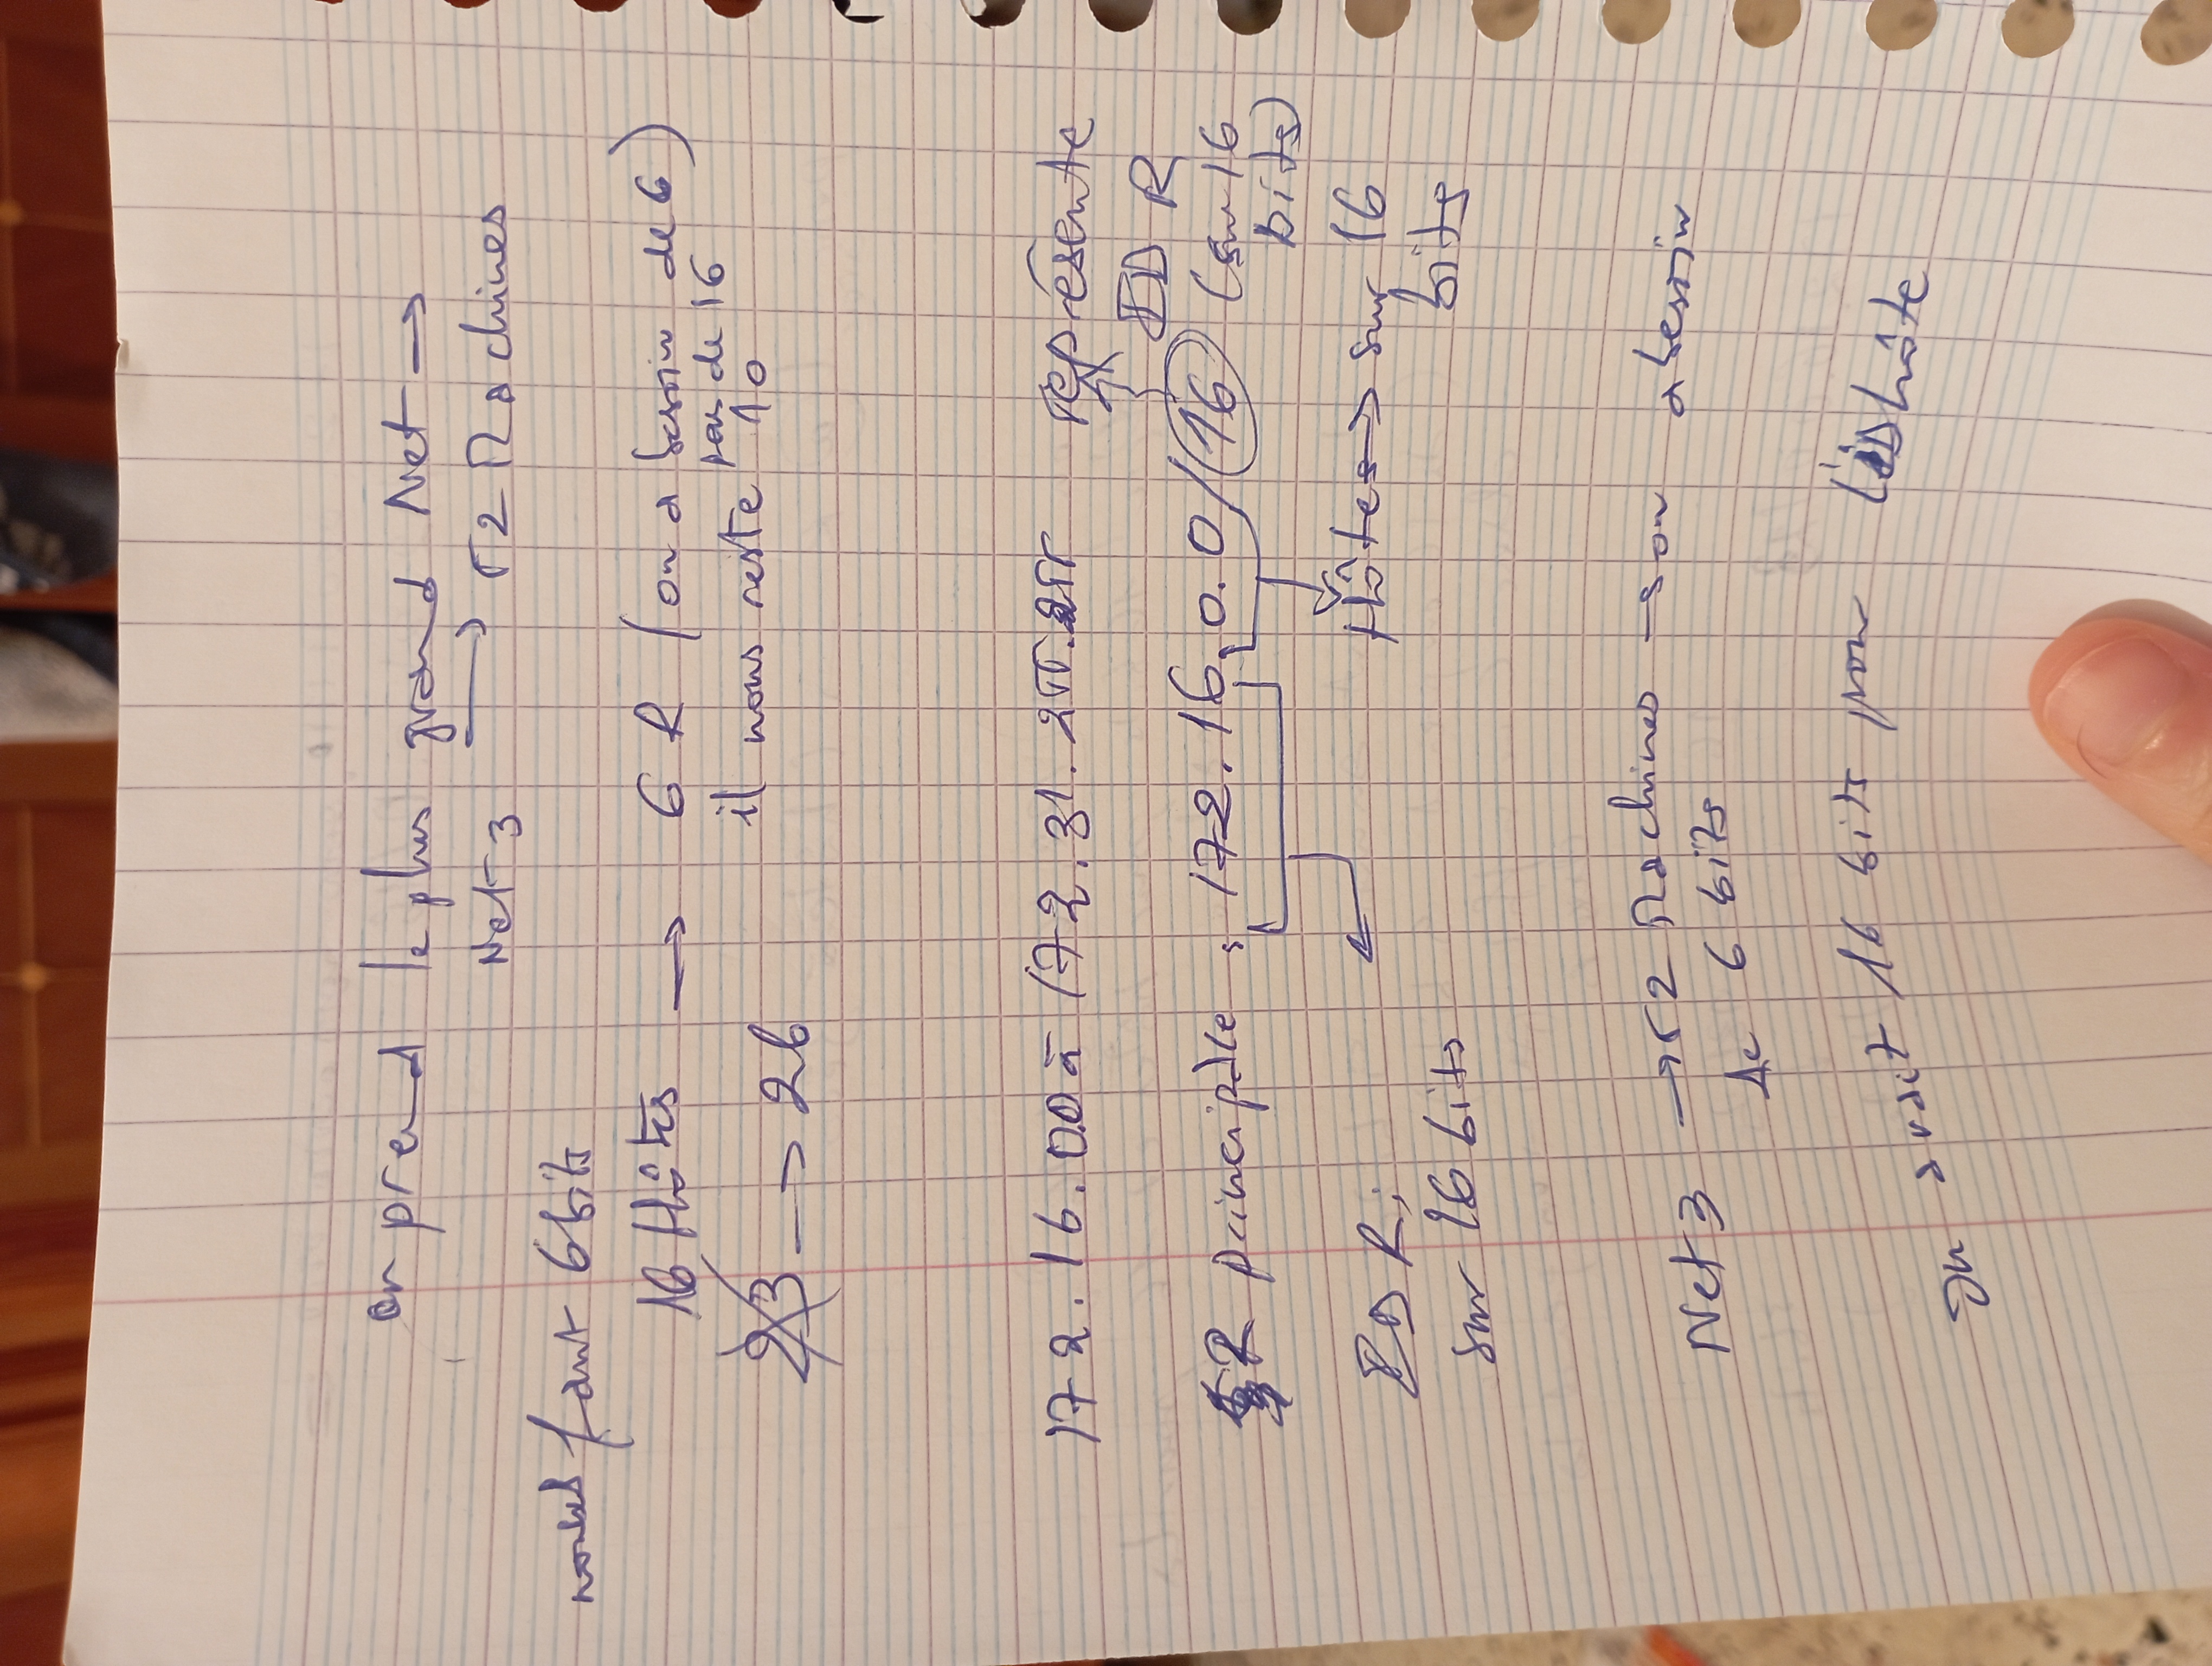 on prend le plus grand Net →
Net 3 → 52 Machines
faut 6 bits
16 Hôtes → 6 R (on a besoin de 6)
pas de 16
il nous reste 10
23 → 26
172.16.0.0 à 172.31.255.255 représente
ID R
R principale : 172.16.0.0/16 (sur 16
bits)
ID R : Hôtes → sur 16
sur 16 bits bits
Net 3 → 52 Machines → on a besoin
de 6 bits
on avait 16 bits pour l'ID hôte